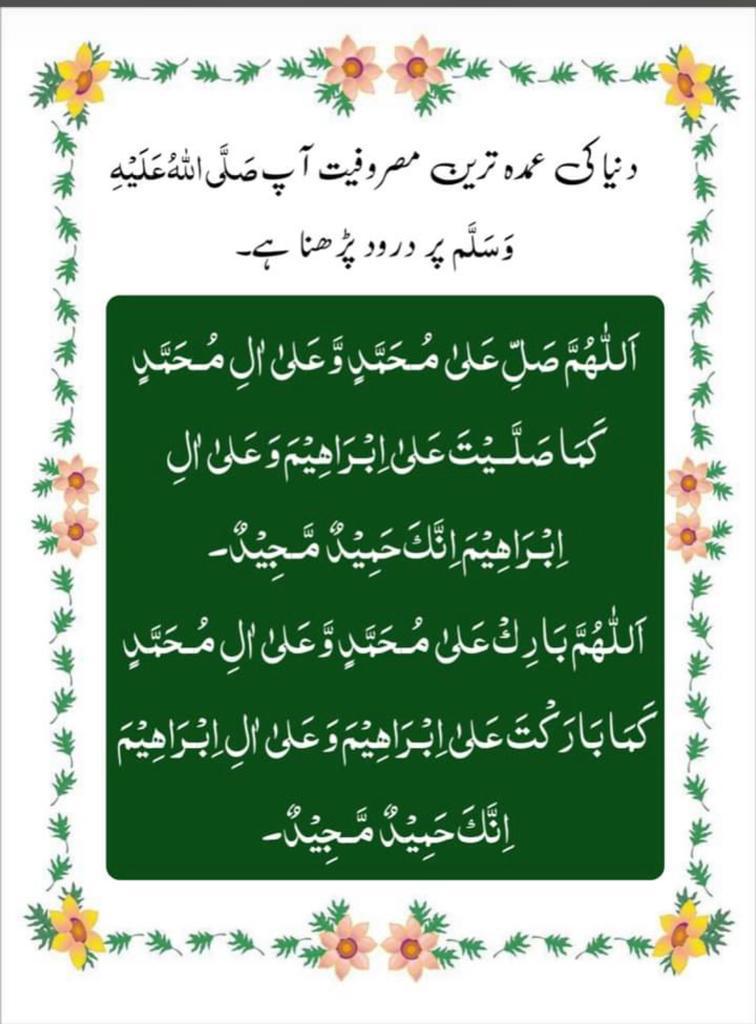 دنیا کی عمدہ ترین مصروفیت آپ صَلَّی اللہُ عَلَیْہِ
وَسَلَّم پر درود پڑھنا ہے۔
اَللّٰهُمَّ صَلِّ عَلىٰ مُحَمَّدٍ وَّعَلىٰ اٰلِ مُحَمَّدٍ
كَمَا صَلَّيْتَ عَلىٰ اِبْرَاهِيْمَ وَعَلىٰ اٰلِ
اِبْرَاهِيْمَ اِنَّكَ حَمِيْدٌ مَّجِيْدٌ۔
اَللّٰهُمَّ بَارِكْ عَلىٰ مُحَمَّدٍ وَّعَلىٰ اٰلِ مُحَمَّدٍ
كَمَا بَارَكْتَ عَلىٰ اِبْرَاهِيْمَ وَعَلىٰ اٰلِ اِبْرَاهِيْمَ
اِنَّكَ حَمِيْدٌ مَّجِيْدٌ۔